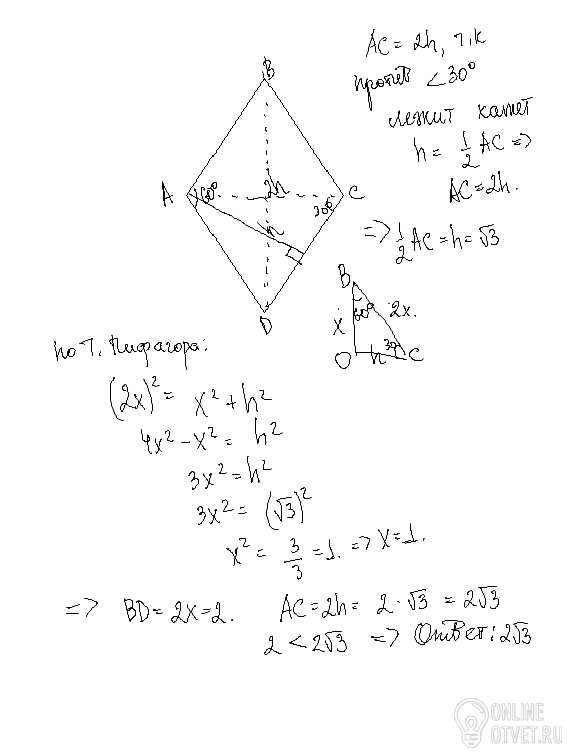 AC = 2h, т.к
против ∠30°
лежит катет
h = 1/2 AC =>
AC = 2h.
=> 1/2 AC = h = √3
B
A
60°
2h
30°
C
h
D
B
60°
2x.
x
O
h
30°
C
по т. Пифагора:
(2x)² = x² + h²
4x² - x² = h²
3x² = h²
3x² = (√3)²
x² = 3/3 = 1. => x = 1.
=> BD = 2x = 2. AC = 2h = 2 · √3 = 2√3
2 < 2√3 => Ответ: 2√3
ONLINE
OTVET.RU